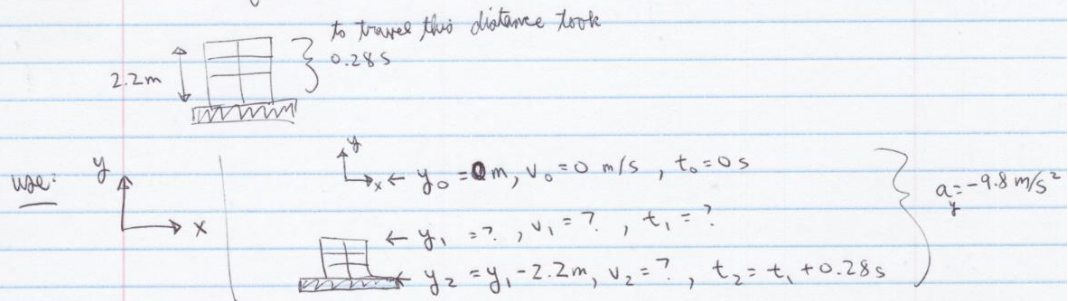 to travel this distance took
0.28s
2.2m
use:
y
x
y
x ← y₀ = 0m, v₀ = 0 m/s , t₀ = 0 s
a_y = -9.8 m/s²
← y₁ = ? , v₁ = ? , t₁ = ?
← y₂ = y₁ - 2.2m, v₂ = ? , t₂ = t₁ + 0.28s